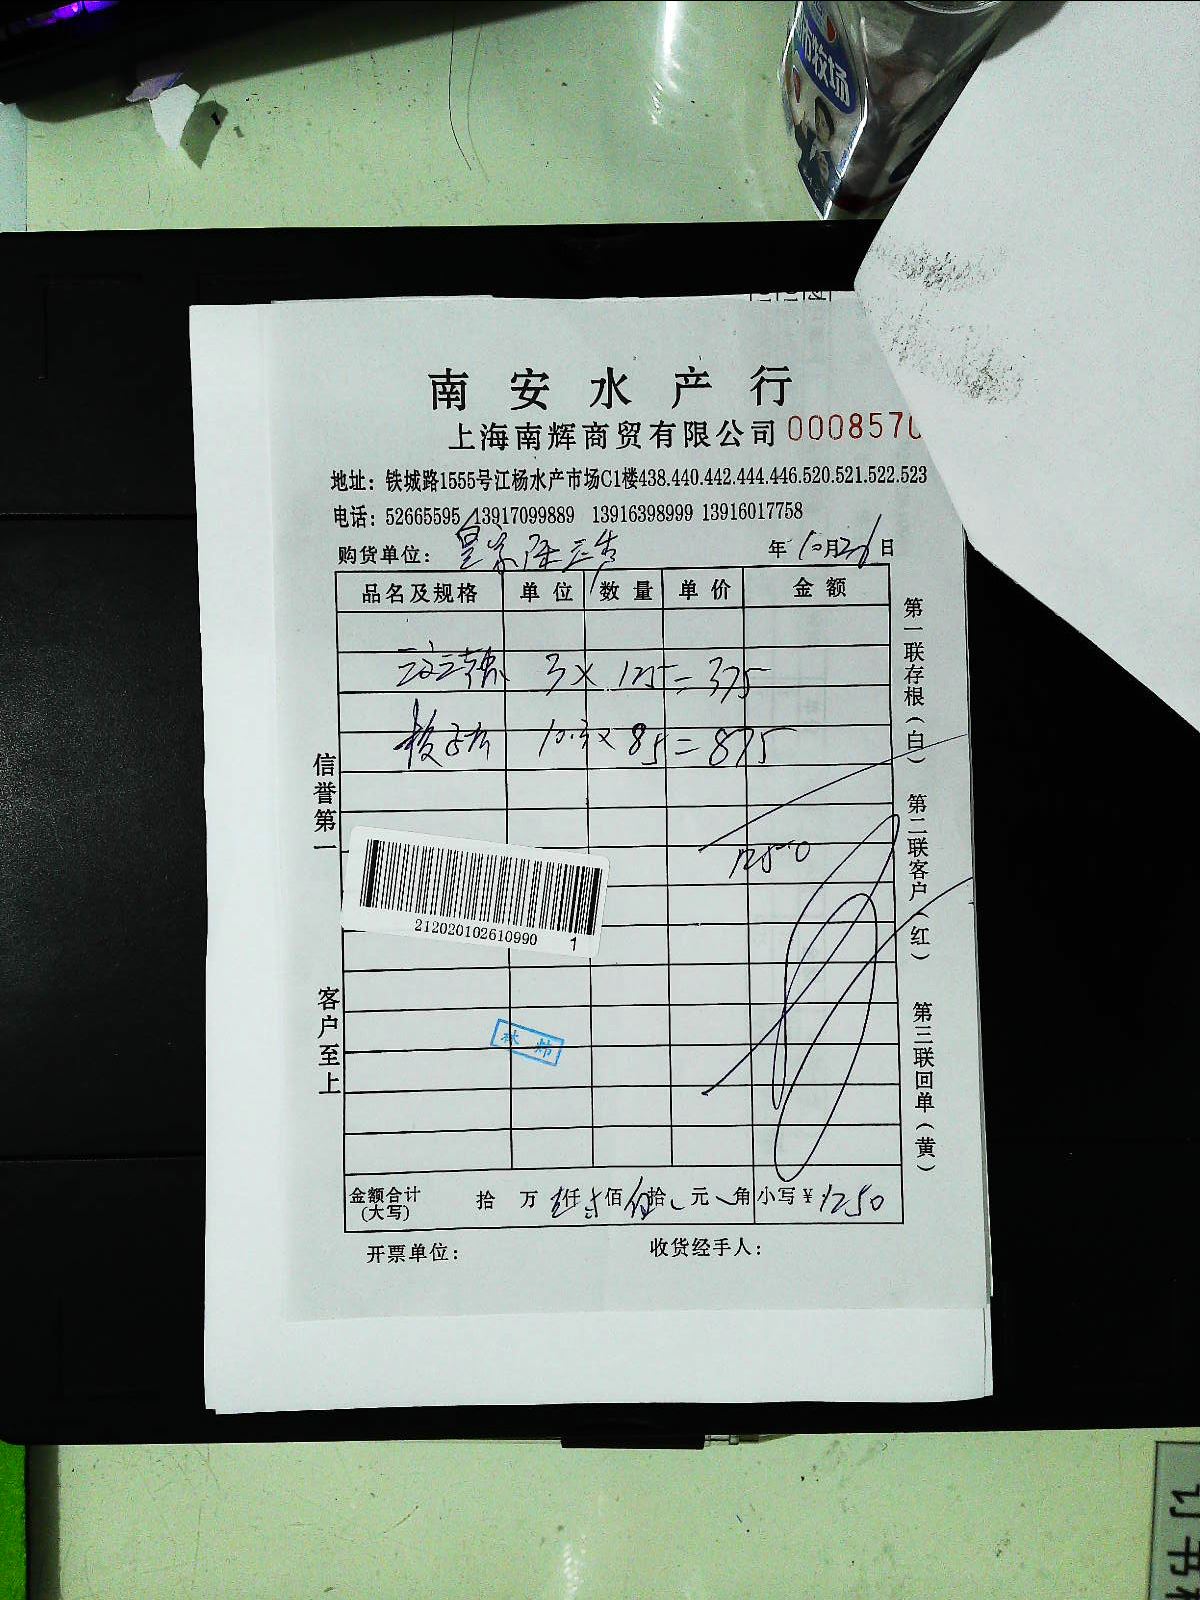 牧场
南安水产行
上海南辉商贸有限公司 0008570
地址：铁城路1555号江杨水产市场C1楼438.440.442.444.446.520.521.522.523
电话：52665595 13917099889 13916398999 13916017758
购货单位： 年10月26日
品名及规格 单位 数量 单价 金额
3×125=375
10.3×85=875
1250
212020102610990 1
信誉第一
客户至上
第一联存根（白）
第二联客户（红）
第三联回单（黄）
金额合计（大写） 拾 万 仟 佰 拾 元 角 小写￥1250
开票单位： 收货经手人：
订书